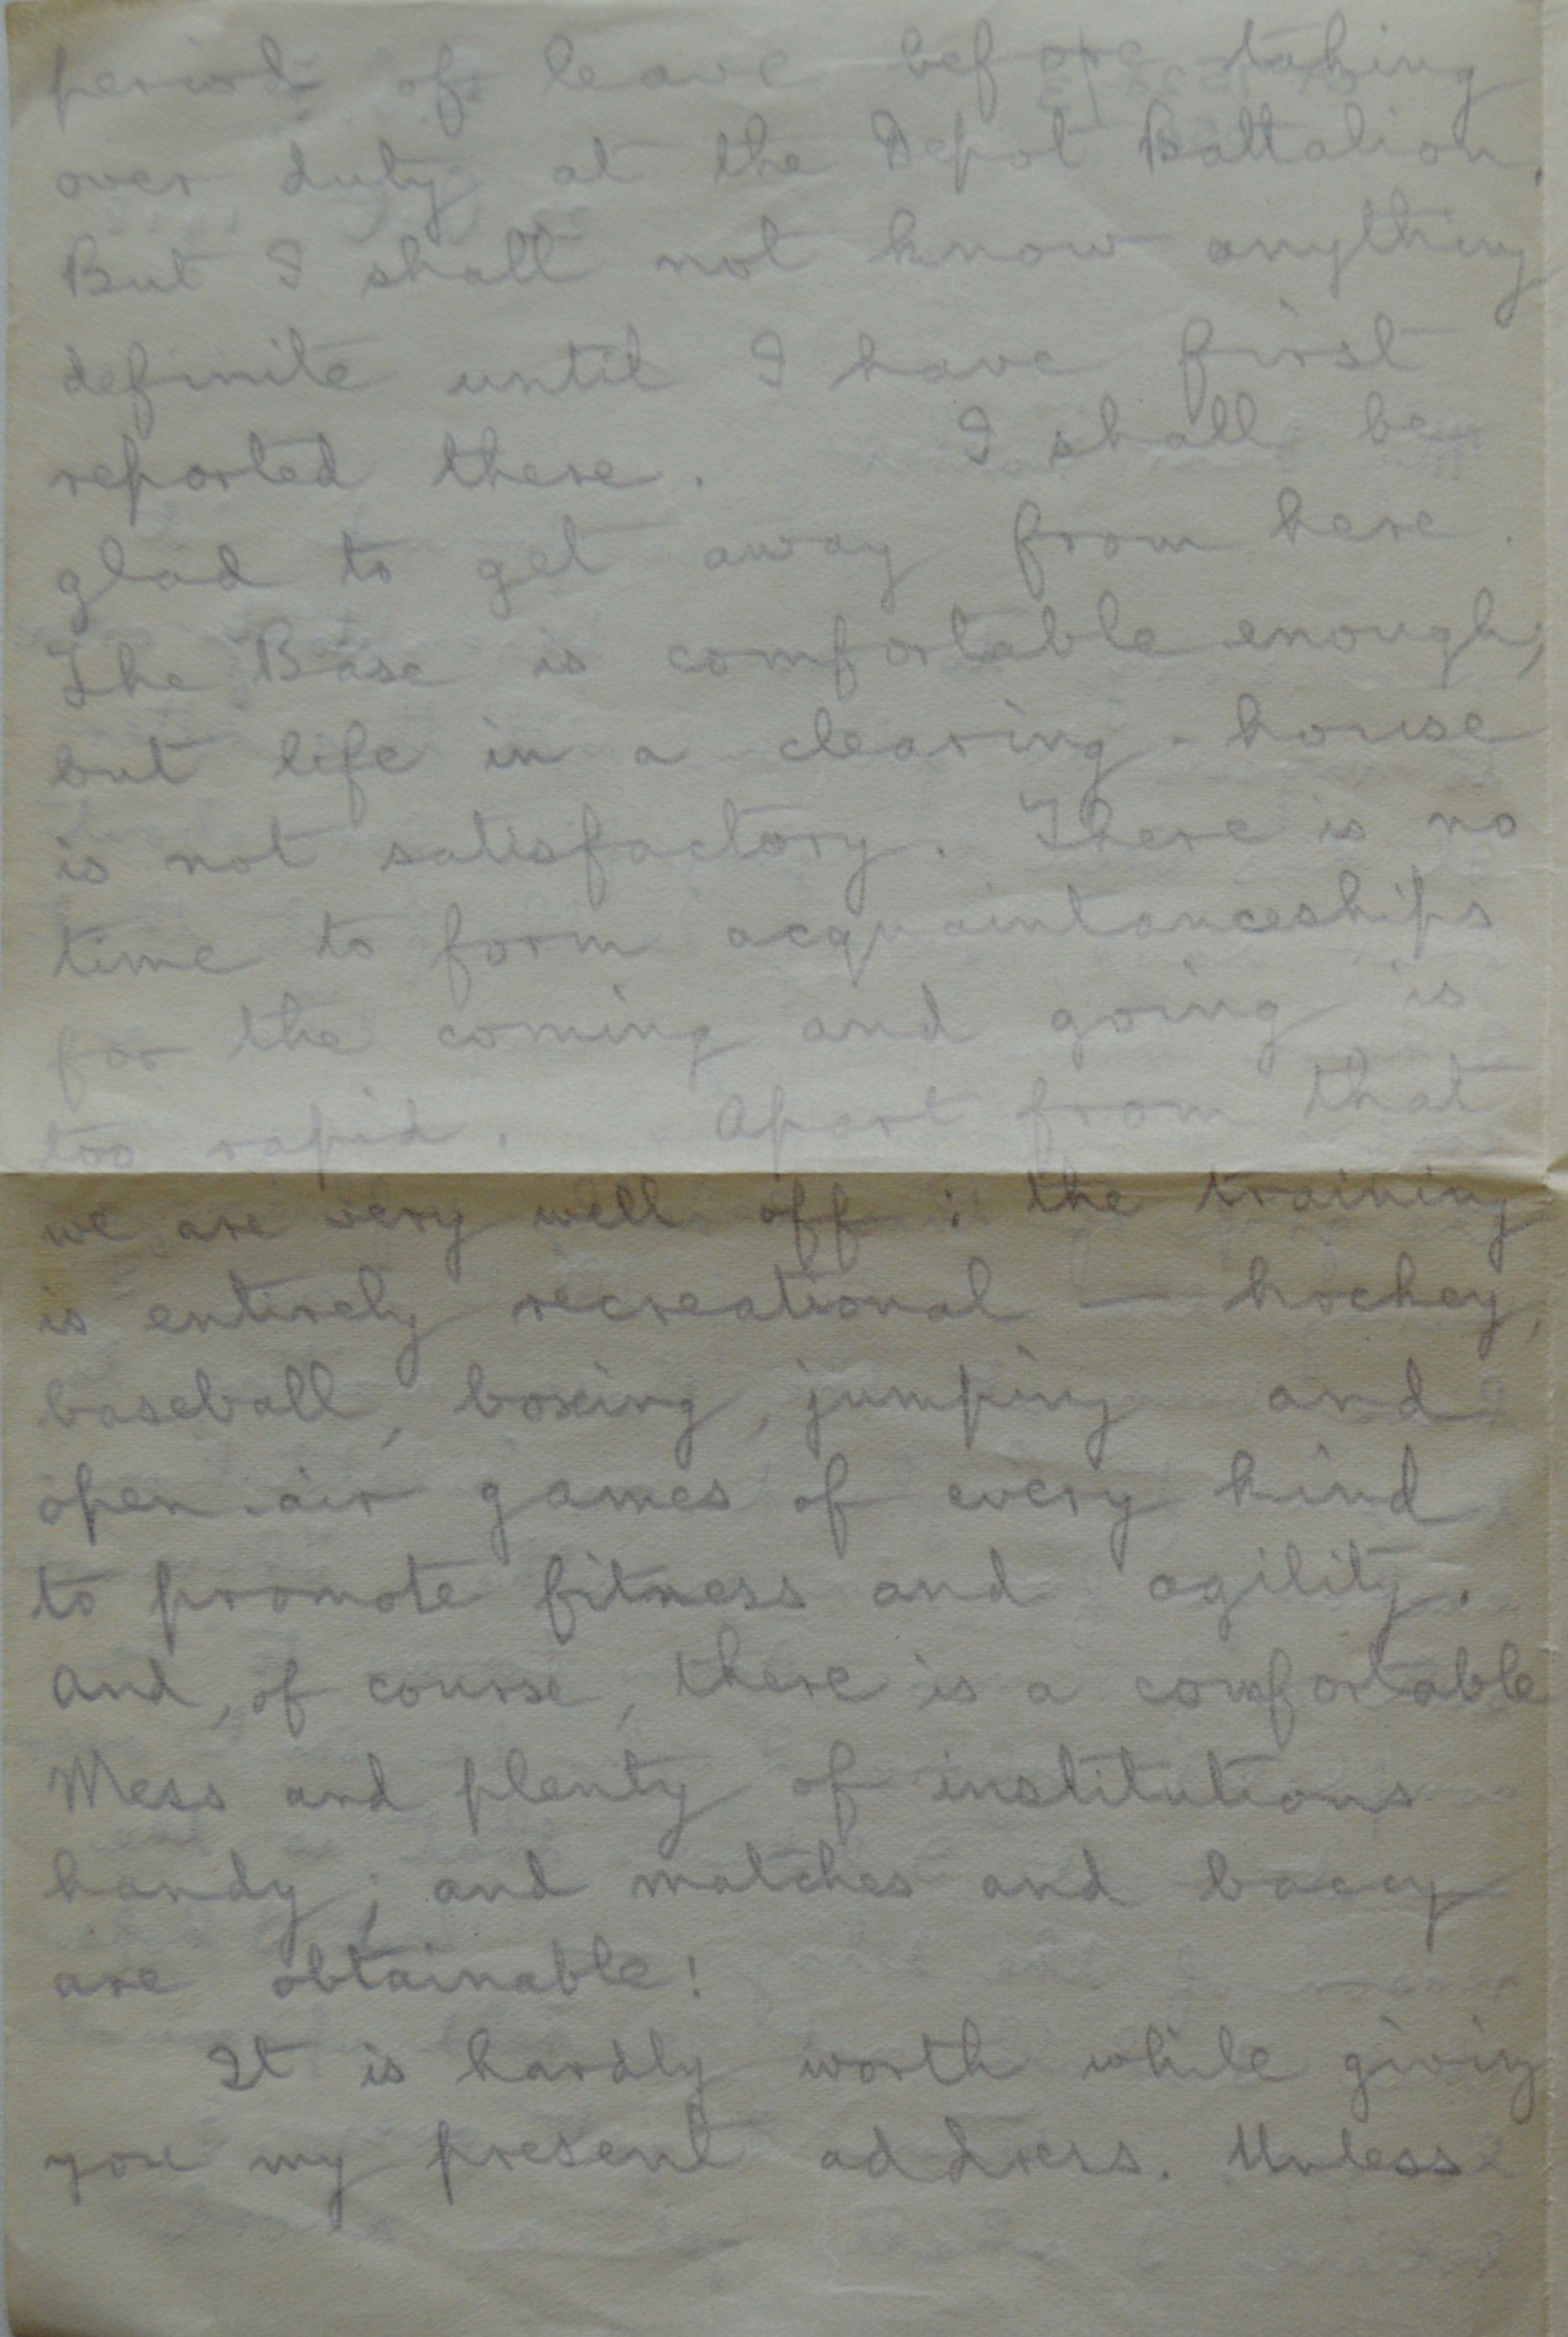 period of leave before taking
over duty at the Depot Battalion.
But I shall not know anything
definite until I have first
reported there. I shall be
glad to get away from here.
The Base is comfortable enough,
but life in a clearing-house
is not satisfactory. There is no
time to form acquaintanceships
for the coming and going is
too rapid. Apart from that
we are very well off: the training
is entirely recreational — hockey,
baseball, boxing, jumping and
open-air games of every kind
to promote fitness and agility.
And, of course, there is a comfortable
Mess and plenty of institutions
handy; and matches and baccy
are obtainable!
It is hardly worth while giving
you my present address. Unless